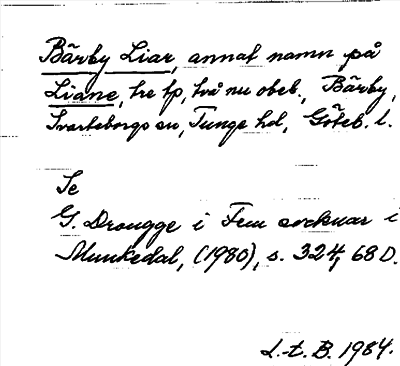 Bärby Liar, annat namn på
Liane, tre tp, två nu obeb., Bärby,
Svarteborgs sn, Tunge hd, Göteb. l.
Se
G. Drougge i Fem socknar i
Munkedal, (1980), s. 324, 68 D.
L.t. B. 1984.